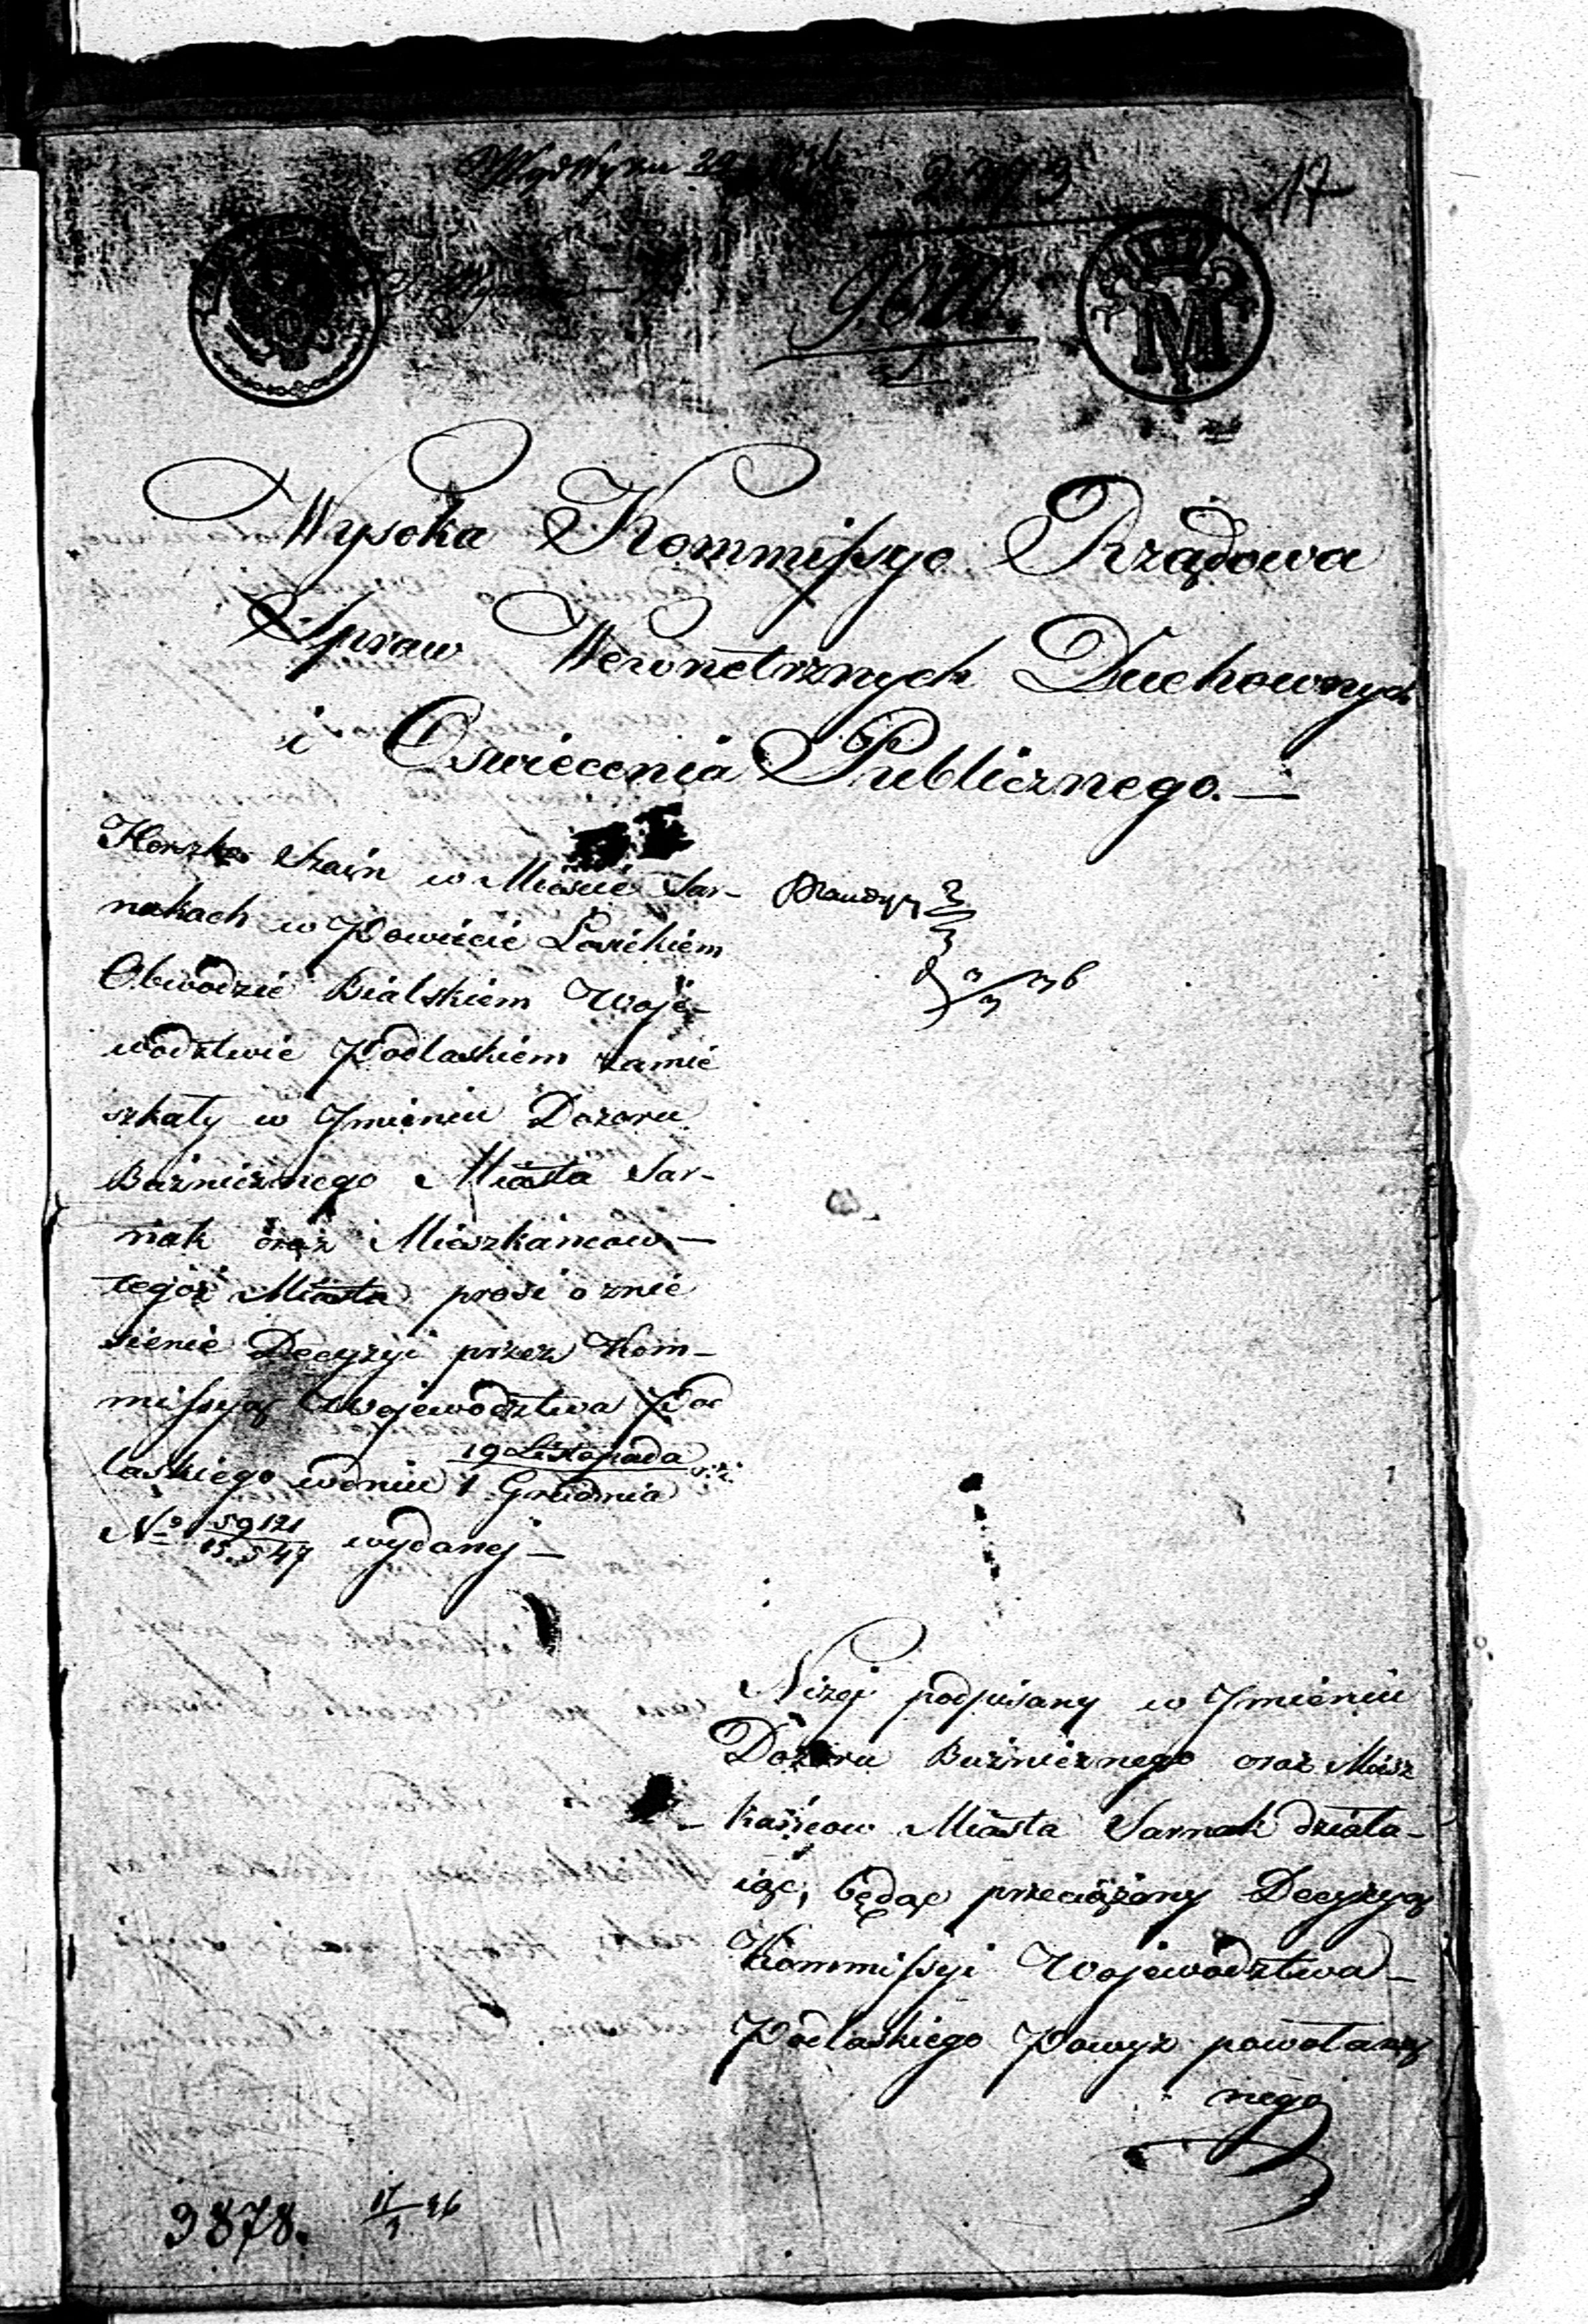 17
Wysoka Kommissyo Rządowa
Spraw Wewnetrznych Duchownych
i Oswiecenia Publicznego. —
Szain w Mieście Sar-
nakach w Powiecie Łosickiem
Obwodzie Bialskiem Woje-
wodztwie Podlaskiem zamie
szkały w Jmieniu Dozoru
Bużnicznego Miasta Sar-
nak oraz Mieszkancow —
tegoż Miasta prosi o znie
sienie Decyzyi przez Kom-
missyą Wojewodztwa Pod
laskiego wdniu 19 Listopada / 1 Grudnia
No 59121 / 15547 wydanej —
Niżej podpisany w Jmieniu
Dozoru Bużnicznego oraz Miesz
kańcow Miasta Sarnak działa-
iąc, będąc przeciążony Decyzyą
Kommissyi Wojewodztwa —
Podlaskiego Powyż powołaną
nego
3878.